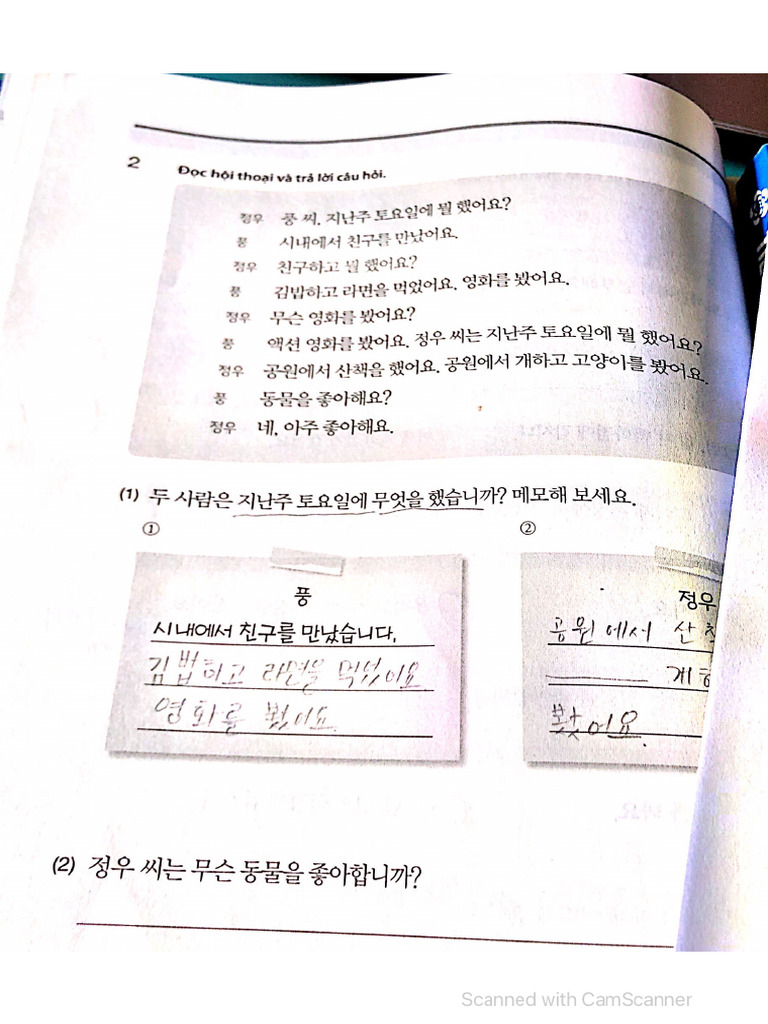 2 Đọc hội thoại và trả lời câu hỏi.
정우 풍 씨, 지난주 토요일에 뭘 했어요?
풍 시내에서 친구를 만났어요.
정우 친구하고 뭘 했어요?
풍 김밥하고 라면을 먹었어요. 영화를 봤어요.
정우 무슨 영화를 봤어요?
풍 액션 영화를 봤어요. 정우 씨는 지난주 토요일에 뭘 했어요?
정우 공원에서 산책을 했어요. 공원에서 개하고 고양이를 봤어요.
풍 동물을 좋아해요?
정우 네, 아주 좋아해요.
(1) 두 사람은 지난주 토요일에 무엇을 했습니까? 메모해 보세요.
① ②
풍
시내에서 친구를 만났습니다.
김밥하고 라면을 먹었어요
영화를 봤어요.
정우
공원에서 산
봤어요.
(2) 정우 씨는 무슨 동물을 좋아합니까?
Scanned with CamScanner